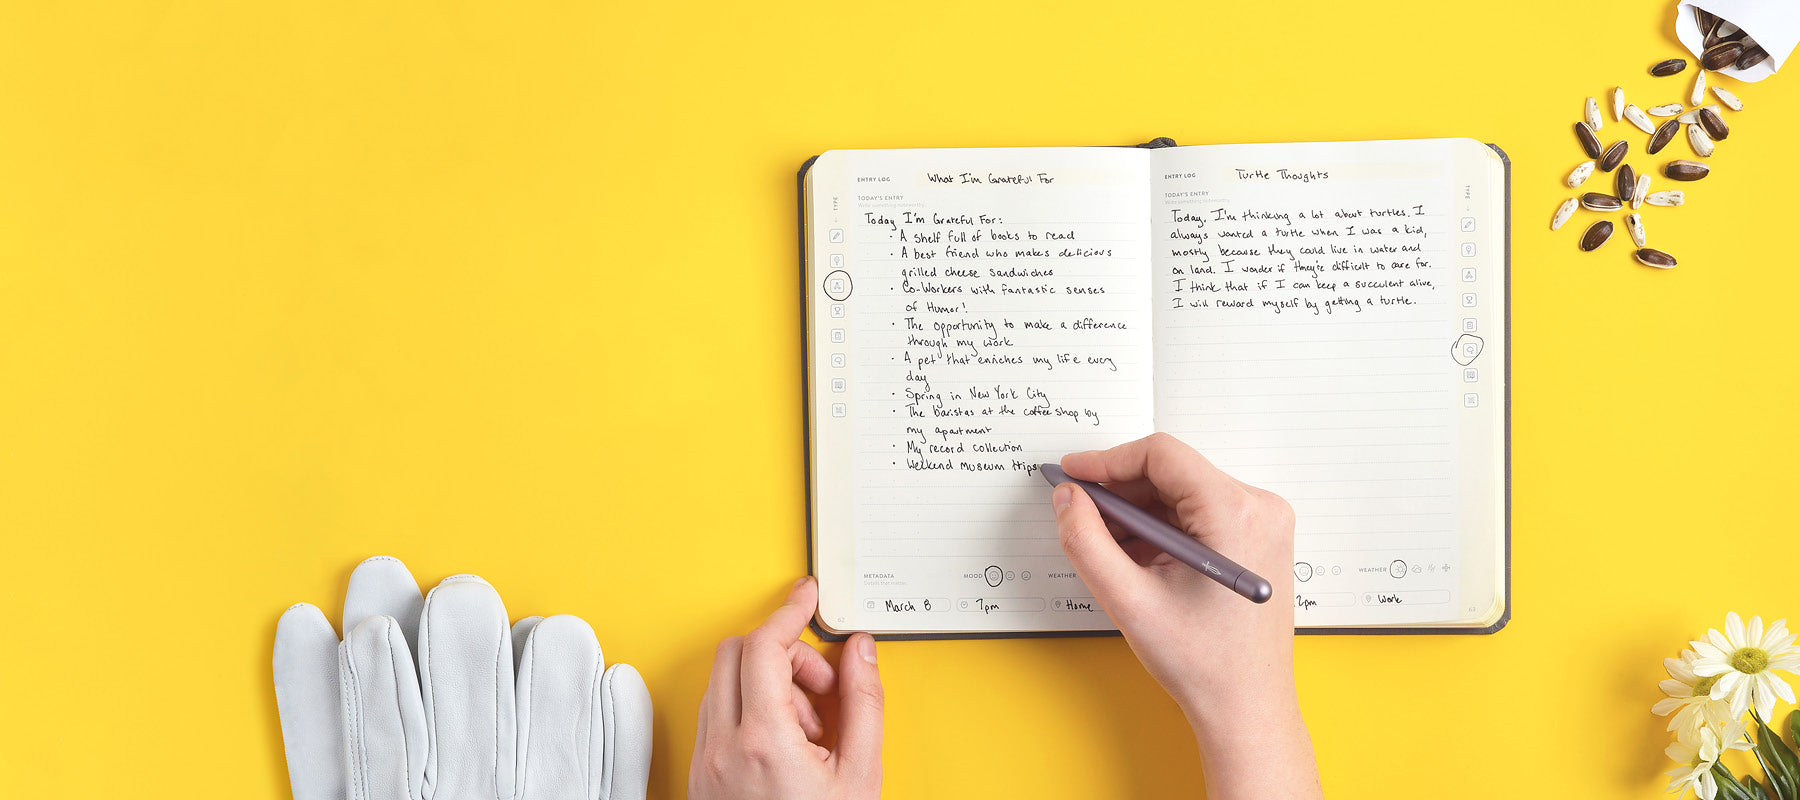 ENTRY LOG
What I'm Grateful For
TODAY'S ENTRY
Write something noteworthy.
TYPE
Today I'm Grateful For:
· A shelf full of books to read
· A best friend who makes delicious
grilled cheese sandwiches
· Co-Workers with fantastic senses
of Humor!
· The opportunity to make a difference
through my work
· A pet that enriches my life every
day
· Spring in New York City
· The baristas at the coffee shop by
my apartment
· My record collection
· Weekend museum trips
METADATA
Details that matter.
MOOD
WEATHER
March 8
7pm
Home
62
ENTRY LOG
Turtle Thoughts
TODAY'S ENTRY
Write something noteworthy.
TYPE
Today, I'm thinking a lot about turtles. I
always wanted a turtle when I was a kid,
mostly because they could live in water and
on land. I wonder if they're difficult to care for.
I think that if I can keep a succulent alive,
I will reward myself by getting a turtle.
WEATHER
2pm
Work
63